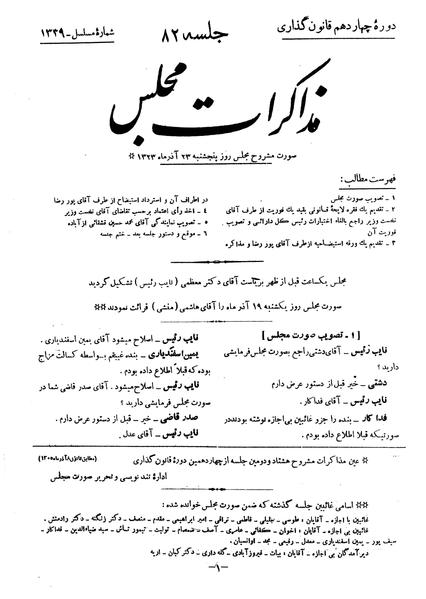 دورهٔ چهاردهم قانون گذاری
جلسه ۸۲
شمارهٔ مسلسل - ۱۳۴۹
مذاکرات مجلس
صورت مشروح مجلس روز پنجشنبه ۲۳ آذرماه ۱۳۲۳ *
فهرست مطالب:
۱ - تصویب صورت مجلس
۲ - تقدیم یك فقره لایحهٔ قانونی بقید یك فوریت از طرف آقای
نخست وزیر راجع بالغاء اختیارات رئیس کل دارائی و تصویب
فوریت آن
۳ - تقدیم یك ورقه استیضاحیه از طرف آقای پور رضا و مذاکره
در اطراف آن و استرداد استیضاح از طرف آقای پور رضا
۴ - اخذ رأی اعتماد بر حسب تقاضای آقای نخست وزیر
۵ - تصویب نمایندگی آقای محمد حسین قشقائی از آباده
۶ - موقع و دستور جلسه بعد - ختم جلسه
مجلس یکساعت قبل از ظهر بریاست آقای دکتر معظمی (نایب رئیس) تشکیل گردید
صورت مجلس روز یکشنبه ۱۹ آذر ماه را آقای هاشمی (منشی) قرائت نمودند **
[ ۱ - تصویب صورت مجلس ]
نایب رئیس - آقای دشتی راجع بصورت مجلس فرمایشی
دارید ؟
دشتی - خیر قبل از دستور عرض دارم
نایب رئیس - آقای فداکار.
فدا کار - بنده را جزو غائبین بی اجازه نوشته بودند در
صورتیکه قبلا اطلاع داده بودم.
نایب رئیس - اصلاح میشود آقای یمین اسفندیاری.
یمین اسفندیاری - بنده غیبتم بواسطه کسالت مزاج
بوده که قبلا اطلاع داده بودم.
نایب رئیس - اصلاح میشود. آقای صدر قاضی شما در
صورت مجلس فرمایشی دارید ؟
صدر قاضی - خیر - قبل از دستور عرض دارم.
نایب رئیس - آقای عدل.
* عین مذاکرات مشروح هشتاد و دومین جلسه از چهاردهمین دورهٔ قانون گذاری
ادارهٔ تند نویسی و تحریر صورت مجلس
** اسامی غائبین جلسه گذشته که ضمن صورت مجلس خوانده شده:
غائبین با اجازه - آقایان: طوسی - جلیلی - فاطمی - تراقی - امیر ابراهیمی - مقدم - منصف - دکتر زنگنه - دکتر رادمنش.
غائبین بی اجازه - آقایان: اخوان - کفائی - عامری - آصف - صمصام - تولیت - تیمور تاش - سید ضیاءالدین - فداکار -
سیف پور - یمین اسفندیاری - معدل - رفیعی - مجد - ابوالسیان.
دیر آمدگان بی اجازه - آقایان: بیات - فیروزآبادی - گله داری - دکتر کیان - اریه
-۱-